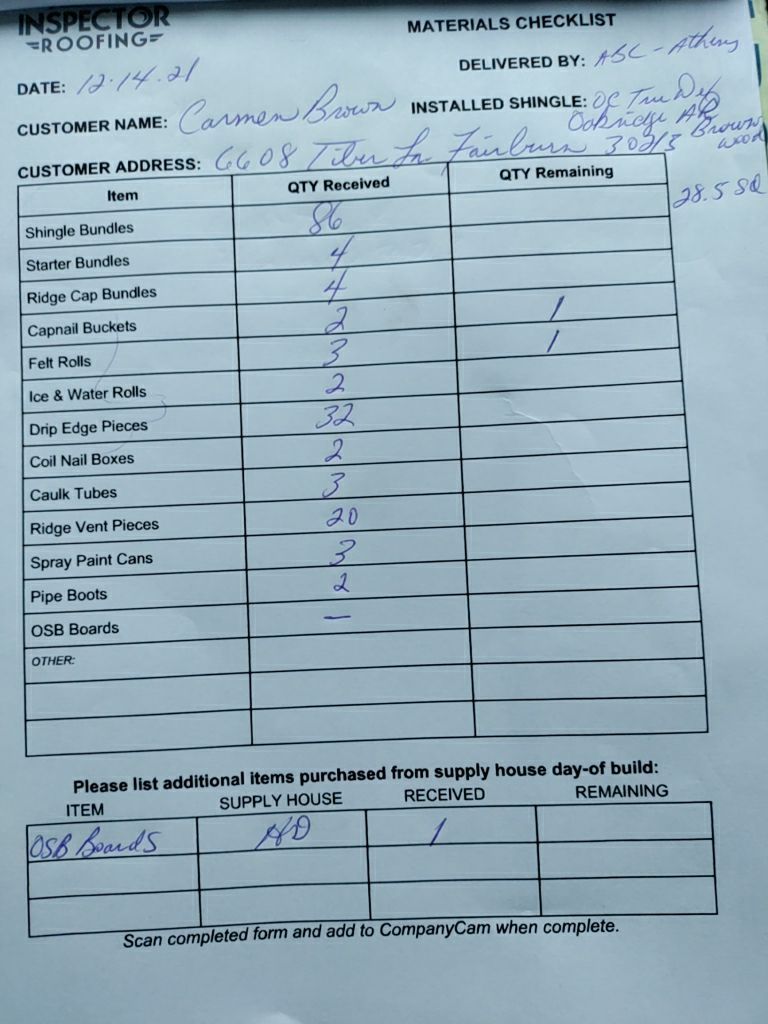 INSPECTOR
ROOFING
MATERIALS CHECKLIST
DATE: 12.14.21
DELIVERED BY: ABC - Athens
CUSTOMER NAME: Carmen Brown
INSTALLED SHINGLE: OC Tru Def
Oakridge AR
Brown
wood
CUSTOMER ADDRESS: 6608 Tiber Ln Fairburn 30213
28.5 SQ
Item QTY Received QTY Remaining
Shingle Bundles 86
Starter Bundles 4
Ridge Cap Bundles 4
Capnail Buckets 2 1
Felt Rolls 3 1
Ice & Water Rolls 2
Drip Edge Pieces 32
Coil Nail Boxes 2
Caulk Tubes 3
Ridge Vent Pieces 20
Spray Paint Cans 3
Pipe Boots 2
OSB Boards —
OTHER:
Please list additional items purchased from supply house day-of build:
ITEM SUPPLY HOUSE RECEIVED REMAINING
OSB Boards HD 1
Scan completed form and add to CompanyCam when complete.